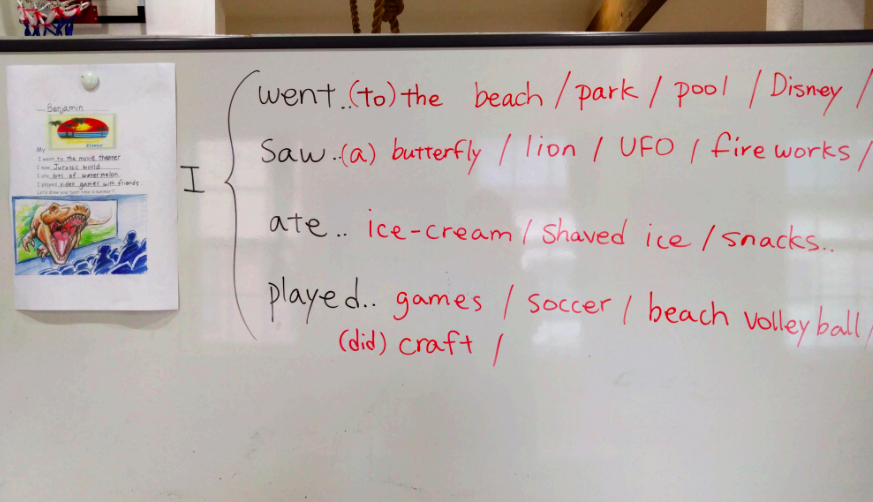 Benjamin
My
I went to the movie theater
I saw Jurassic World
I ate lots of watermelon
I played video games with friends
I
went..(to) the beach / park / pool / Disney /
Saw..(a) butterfly / lion / UFO / fire works /
ate.. ice-cream / Shaved ice / snacks..
played.. games / soccer / beach volleyball /
(did) craft /